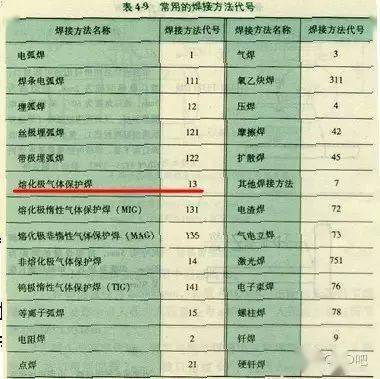 表 4-9 常用的焊接方法代号
焊接方法名称 焊接方法代号 焊接方法名称 焊接方法代号
电弧焊 1 气焊 3
焊条电弧焊 111 氧乙炔焊 311
埋弧焊 12 压焊 4
丝极埋弧焊 121 摩擦焊 42
带极埋弧焊 122 扩散焊 45
熔化极气体保护焊 13 其他焊接方法 7
熔化极惰性气体保护焊（MIG） 131 电渣焊 72
熔化极非惰性气体保护焊（MAG） 135 气电立焊 73
非熔化极气体保护焊 14 激光焊 751
钨极惰性气体保护焊（TIG） 141 电子束焊 76
等离子弧焊 15 螺柱焊 78
电阻焊 2 钎焊 9
点焊 21 硬钎焊